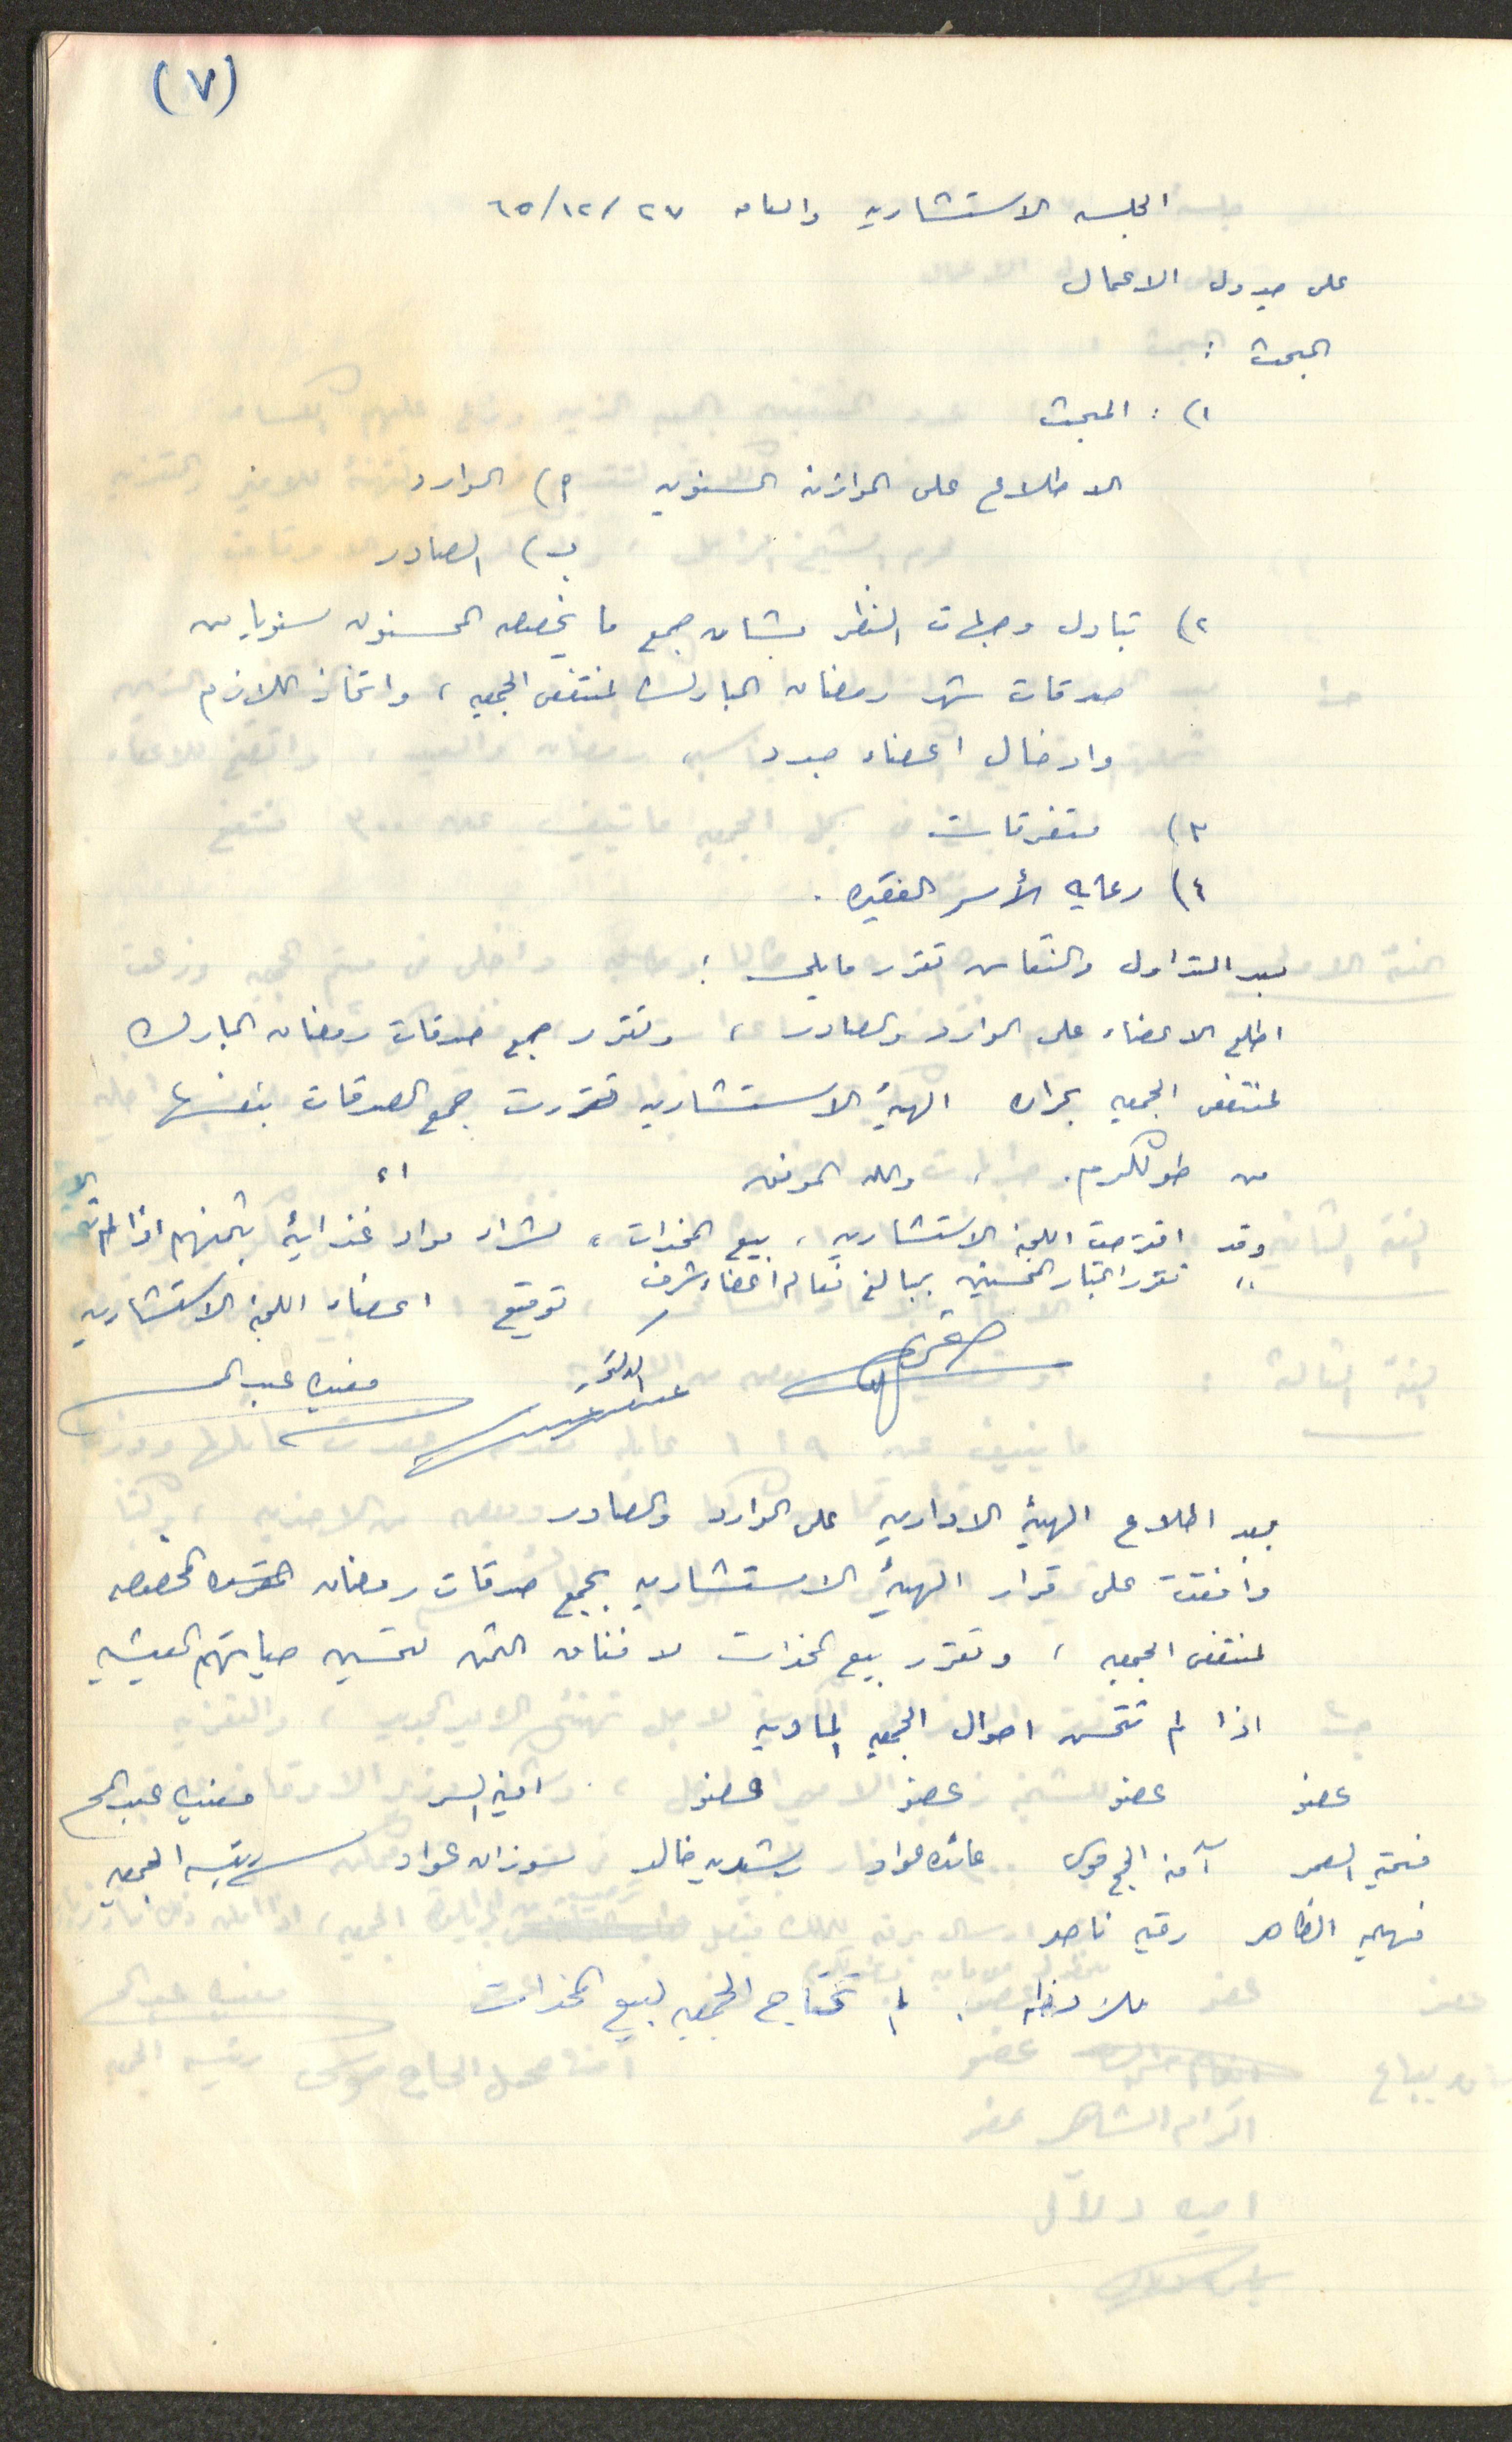 (٧)
الجلسه الاستشاريه والعامه ٢٧ /١٢/ ٦٥
على جدول الاعمال
البحث :
١) : البحث
الاطلاع على الموازنه السنويه ٢) الوارد
ب) الصادر
٢) تبادل وجهات النظر بشان جمع ما يخصصه المحسنون سنويا من
صدقات شهر رمضان المبارك لمنتفعي الجمعيه ، واتخاذ اللازم
وادخال اعضاء جدد
٣) متفرقات
٤) رعايه الأسر الفقيره .
بعد التداول والنقاش تقرر مايلي :
اطلع الاعضاء على الوارد والصادر ، وتقرر جمع صدقات رمضان المبارك
لمنتفعي الجمعيه الهيئة الاستشاريه قررت جمع الصدقات بنفسها
من طولكرم . والله الموفق
وقد اقترحت اللجنة الاستشاريه ، بيع المخدات ، لشراء مواد غذائية بثمنهم اذا لم
" تقرر اعتبار المحسنين بمبالغ اعضاء شرف
توقيع اعضاء اللجنة الاستشاريه
الدكتور
مفيده عبد الرحمن
بعد اطلاع الهيئة الاداريه على الوارد والصادر
وافقت على قرار الهيئة الاستشاريه بجمع صدقات رمضان المخصصه
لمنتفعي الجمعيه ، وتقرر بيع المخدات لانفاق الثمن لتحسين حياتهم المعيشيه
اذا لم تتحسن احوال الجمعيه الماديه
عضو عضو عضو عضو امينة السر مفيده عبد الرحمن
فتحيه السمر آمنه الحج موسى عائده عواد رشديه خالد سوزان عواد رئيسه الجمعيه
فهميه الظاهر رقيه ناصر
ملاحظه : لم تحتاج الجمعيه لبيع المخدات